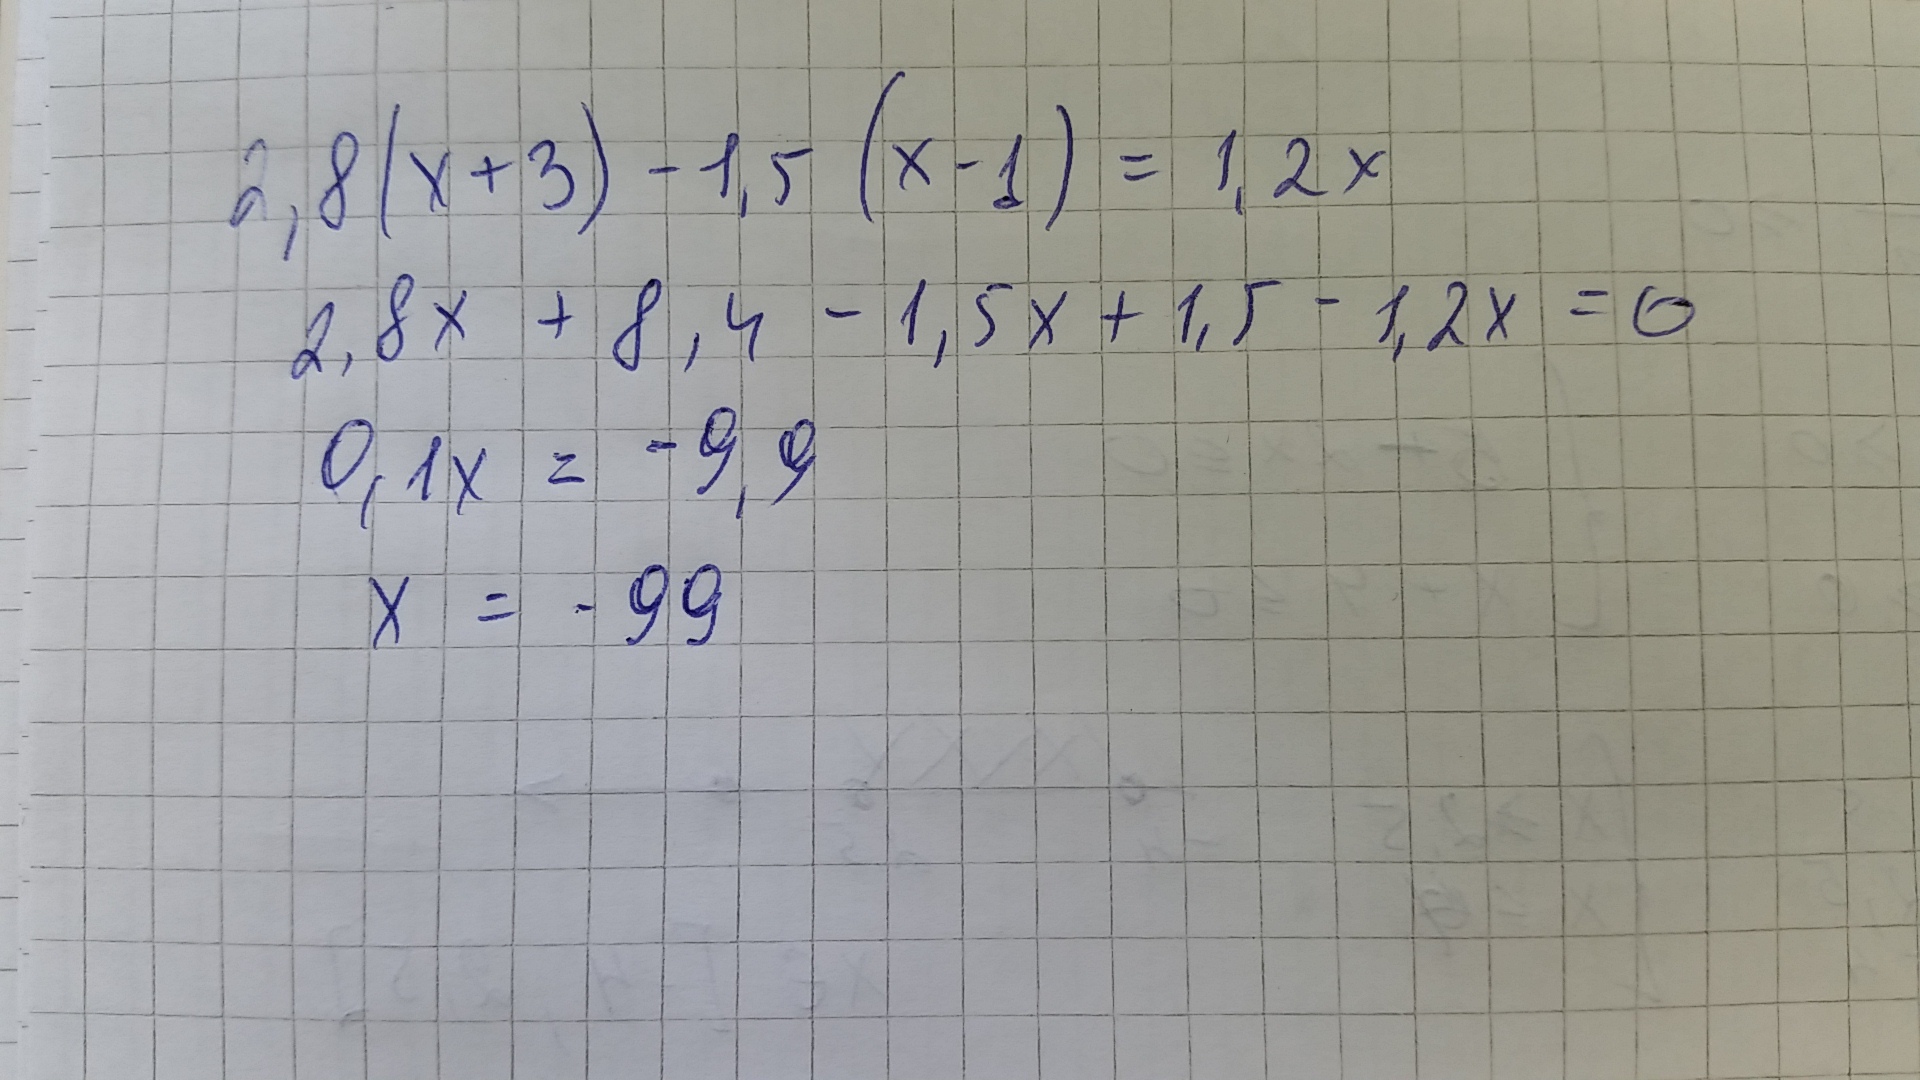 2,8(x+3) - 1,5(x-1) = 1,2x
2,8x + 8,4 - 1,5x + 1,5 - 1,2x = 0
0,1x = -9,9
x = -99